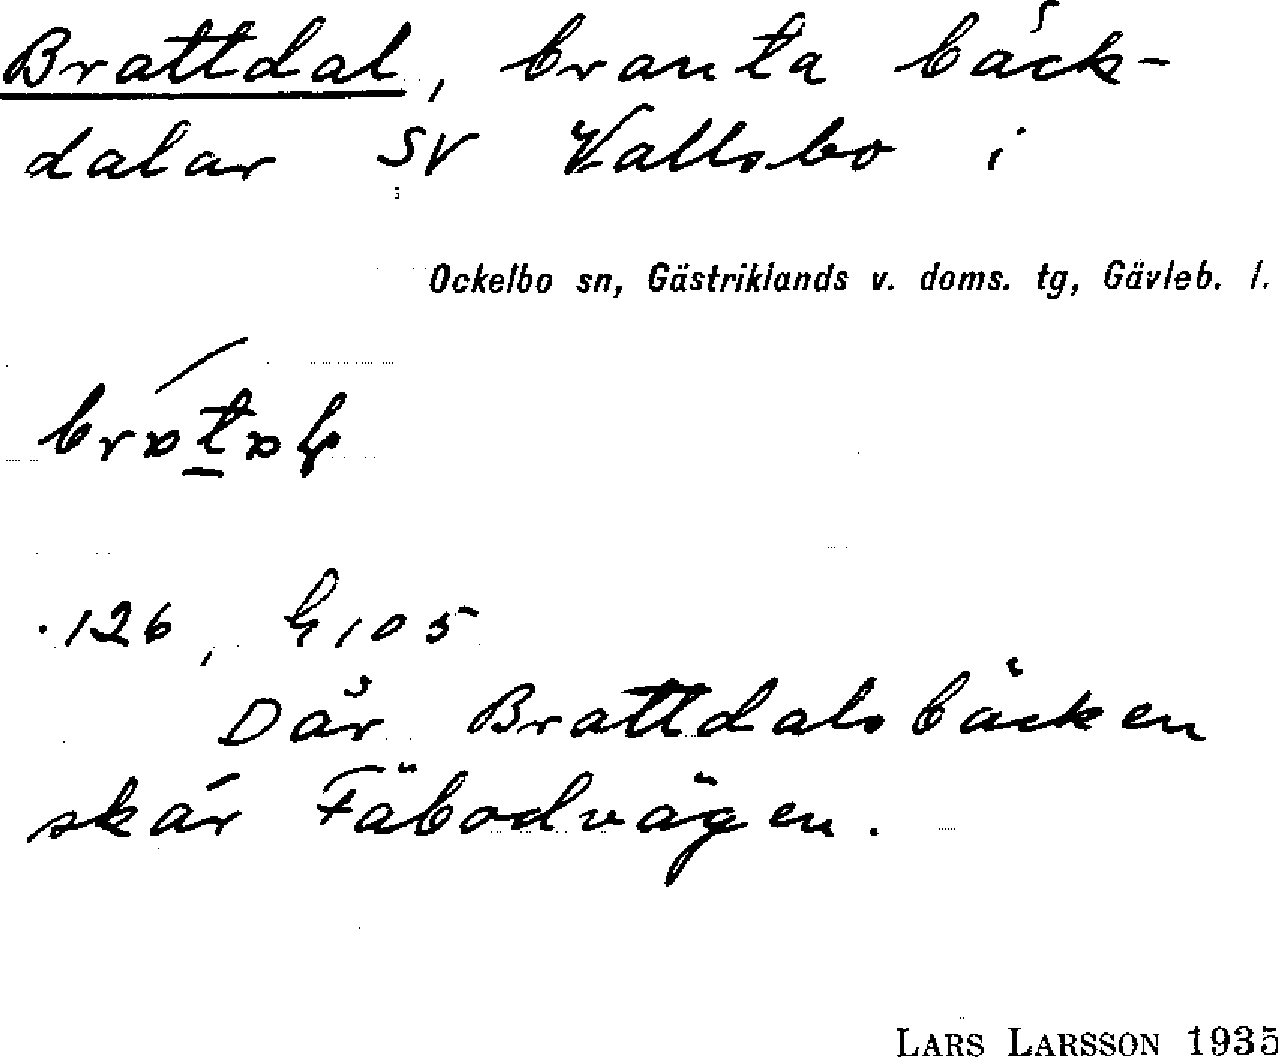 Brattdal, branta bäck-
dalar SV Vallsbo i
Ockelbo sn, Gästriklands v. doms. tg, Gävleb. l.
126, G105
Där Brattdalsbäcken
skär Fäbodvägen.
LARS LARSSON 1935